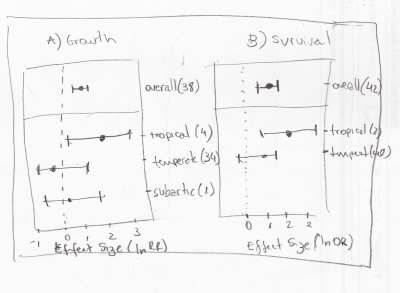 A) Growth
overall(38)
tropical (4)
temperate(34)
subartic(1)
-1 0 1 2 3
Effect Size (ln RR)
B) Survival
overall(42)
tropical(2)
0 1 2 2
Effect Size (ln OR)